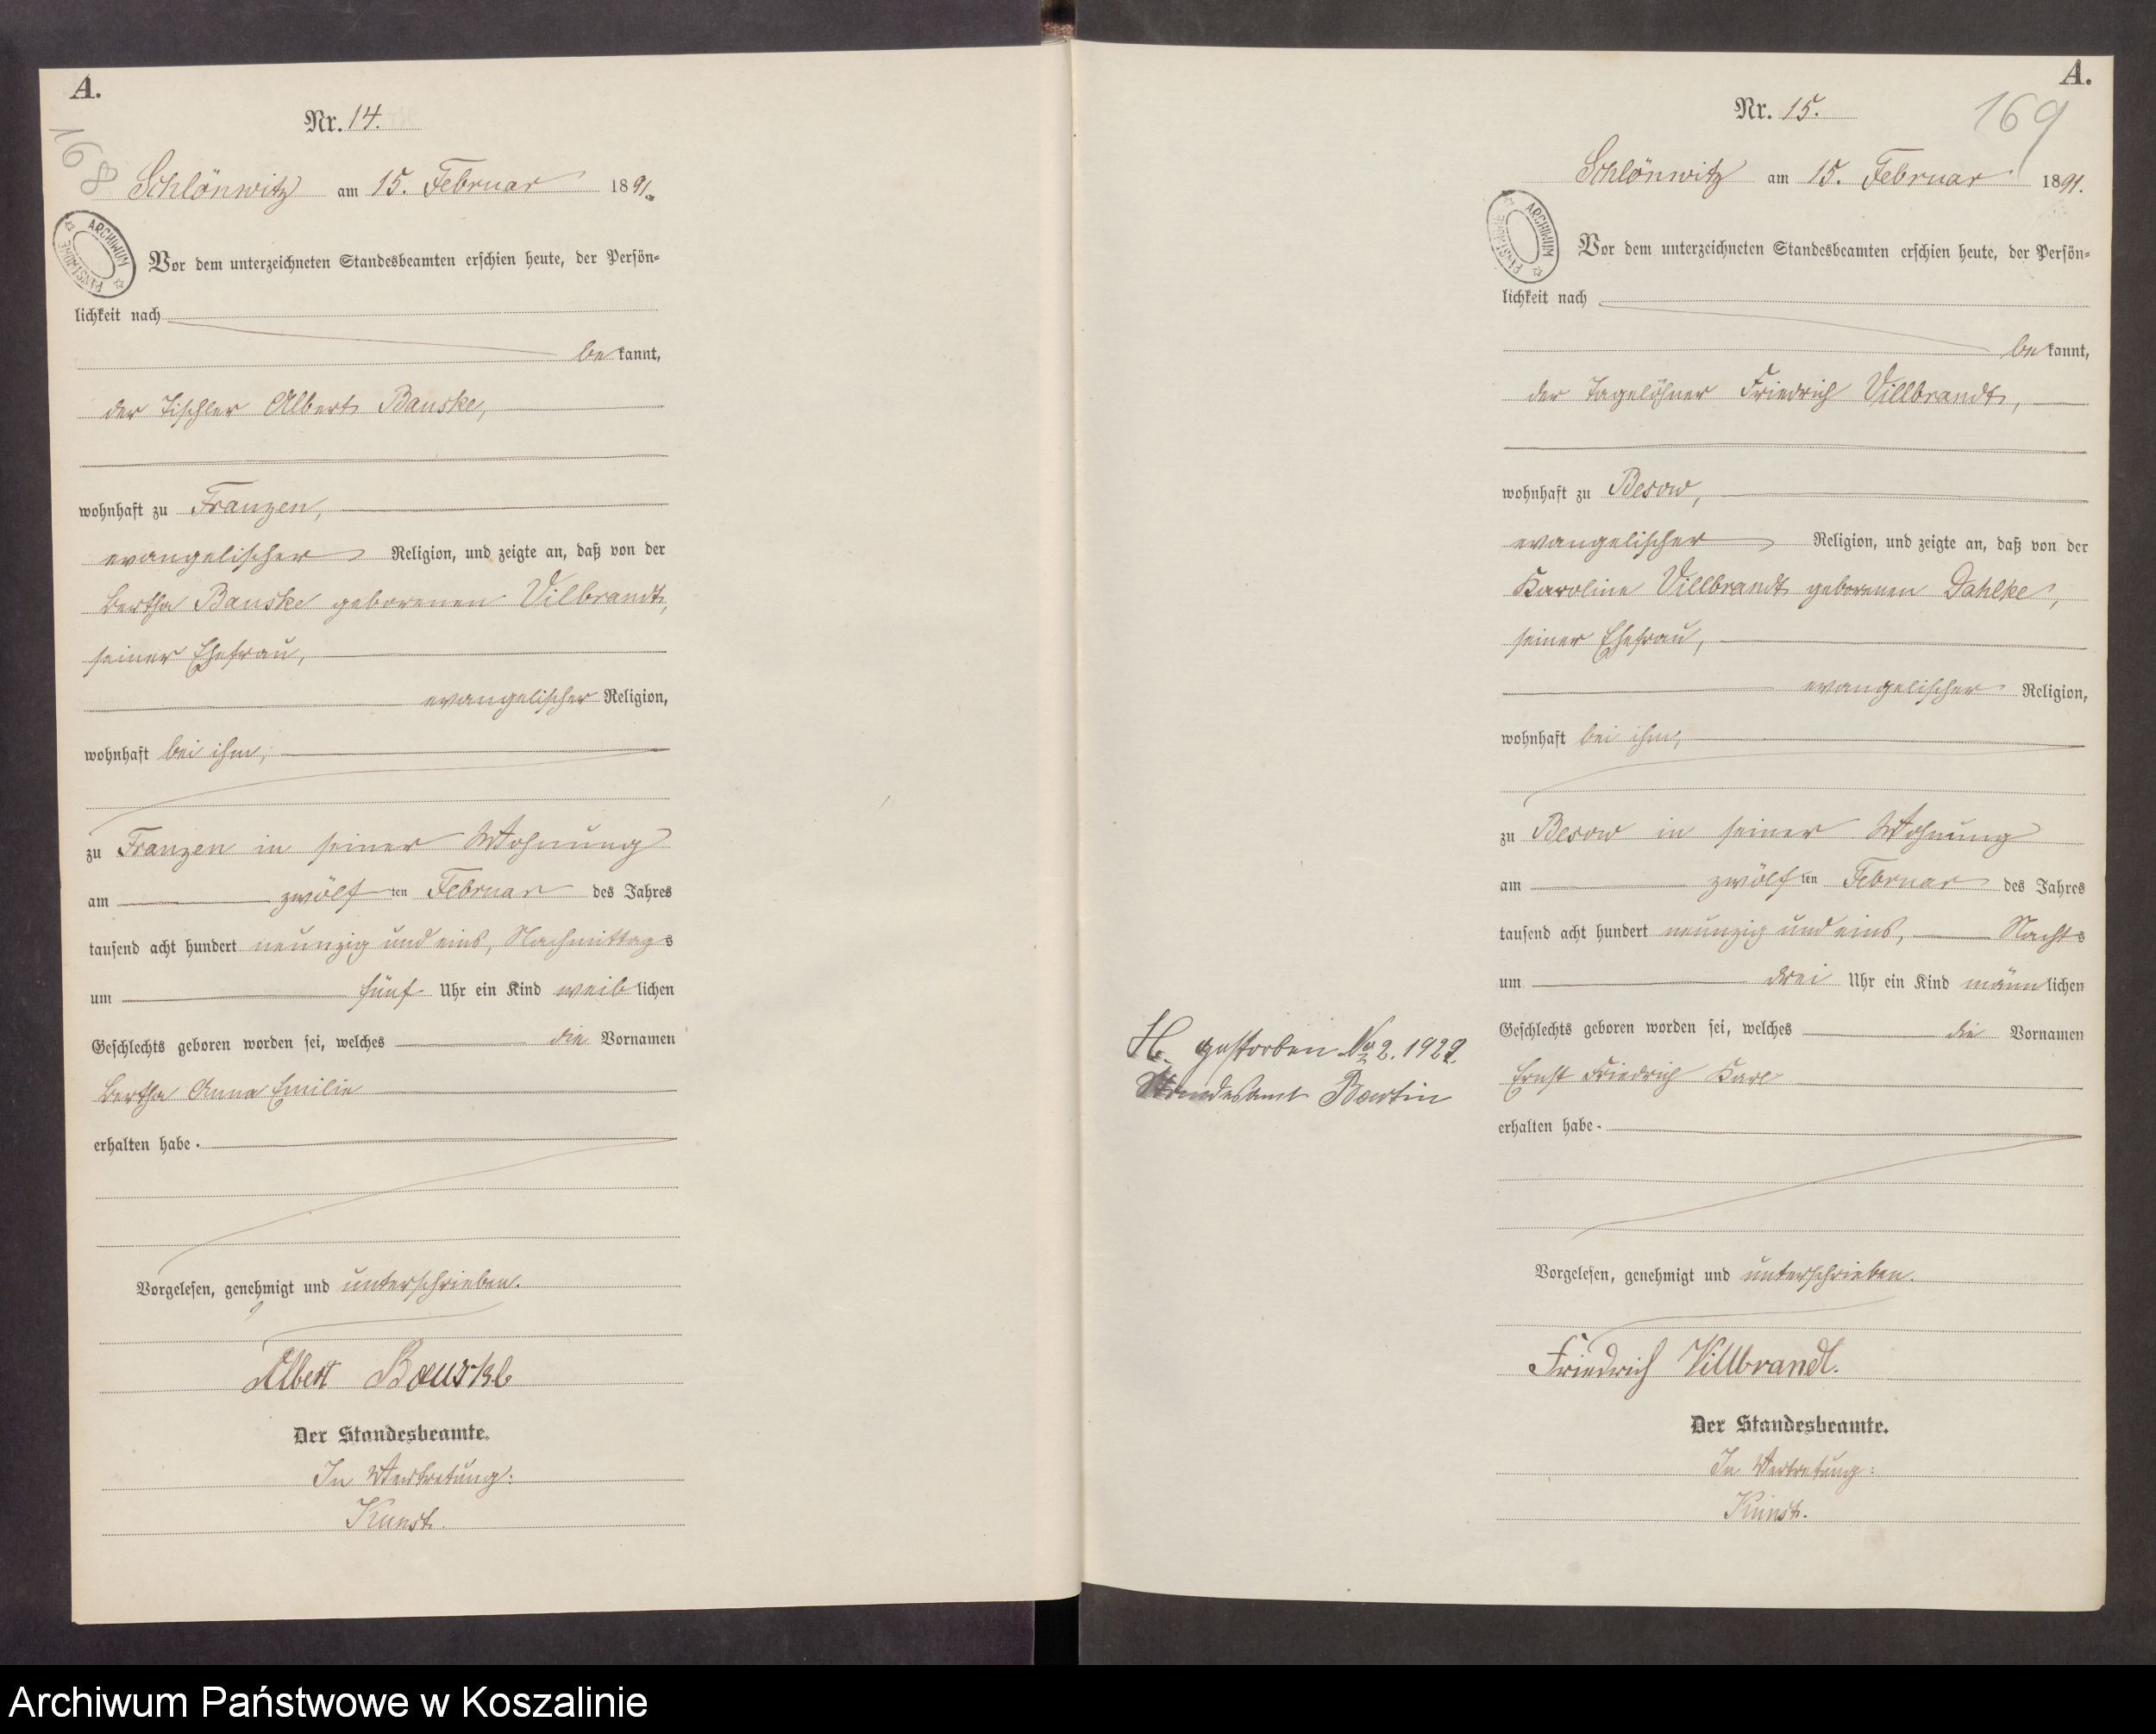 A.
168
Nr. 14.
Schlönwitz am 15. Februar 1891.
ARCHIWUM PAŃSTWOWE
Vor dem unterzeichneten Standesbeamten erschien heute, der Persön-
lichkeit nach
bekannt,
der Tischler Albert Bauske,
wohnhaft zu Franzen,
evangelischer Religion, und zeigte an, daß von der
Bertha Bauske geborenen Vilbrandt,
seiner Ehefrau,
evangelischer Religion,
wohnhaft bei ihm,
zu Franzen in seiner Wohnung
am zwölften Februar des Jahres
tausend acht hundert neunzig und eins, Nachmittags
um fünf Uhr ein Kind weiblichen
Geschlechts geboren worden sei, welches die Vornamen
Bertha Anna Emilie
erhalten habe.
Vorgelesen, genehmigt und unterschrieben.
Albert Bauske
Der Standesbeamte.
In Vertretung:
Kunst.
A.
169
Nr. 15.
Schlönwitz am 15. Februar 1891.
ARCHIWUM PAŃSTWOWE
Vor dem unterzeichneten Standesbeamten erschien heute, der Persön-
lichkeit nach
bekannt,
der Tagelöhner Friedrich Villbrandt,
wohnhaft zu Besow,
evangelischer Religion, und zeigte an, daß von der
Karoline Villbrandt geborenen Dahlke,
seiner Ehefrau,
evangelischer Religion,
wohnhaft bei ihm,
zu Besow in seiner Wohnung
am zwölften Februar des Jahres
tausend acht hundert neunzig und eins, Nachts
um drei Uhr ein Kind männlichen
Geschlechts geboren worden sei, welches die Vornamen
Ernst Friedrich Karl
erhalten habe.
H. gestorben No 2. 1929.
Standesamt Bartin
Vorgelesen, genehmigt und unterschrieben.
Friedrich Villbrandt.
Der Standesbeamte.
In Vertretung:
Kunst.
Archiwum Państwowe w Koszalinie